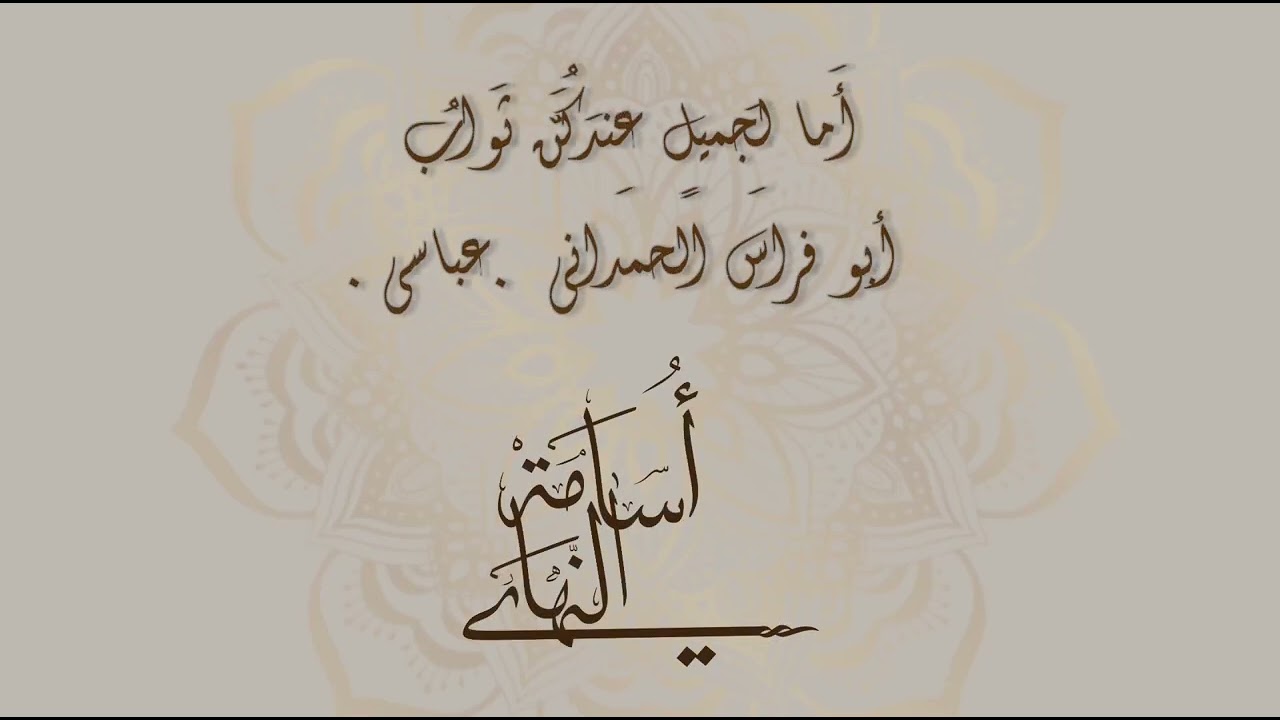 أَما لَجَميلٍ عِندَكُنَّ ثَوابُ
أبو فراس الحمدانى . عباسى .
أُسَامَةُ
النَّهَائِي